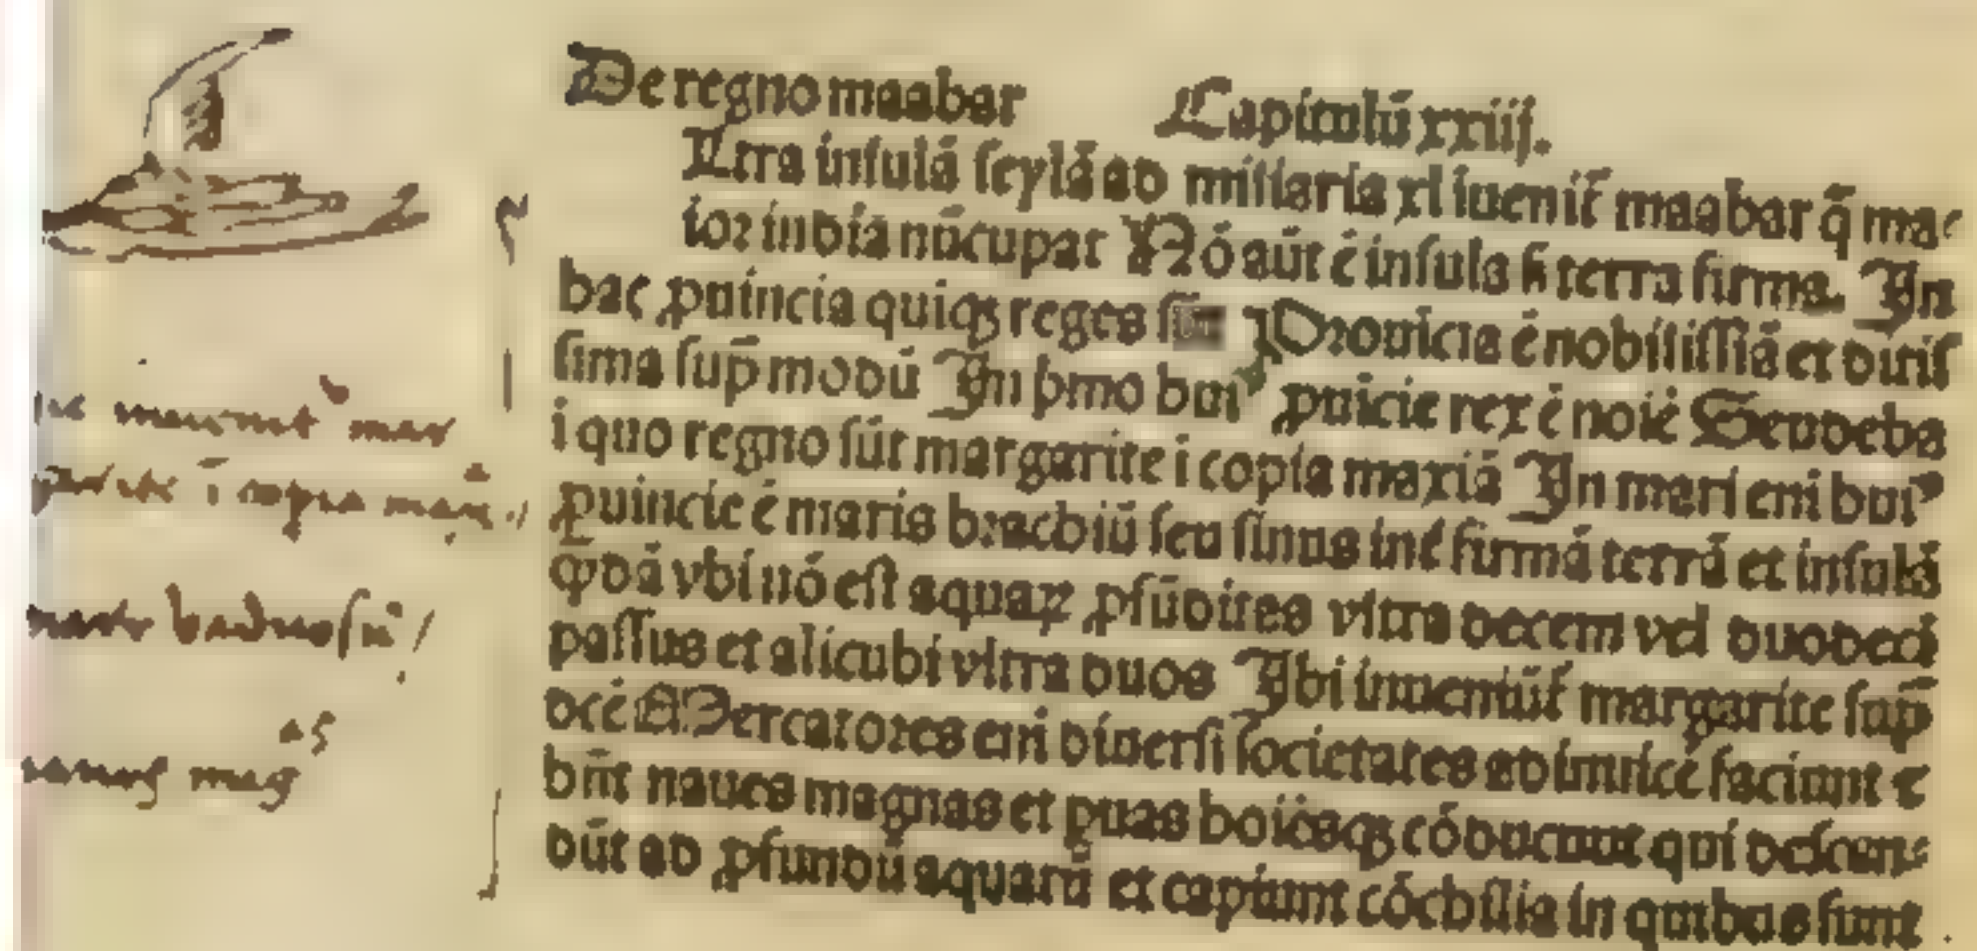 De regno maabar Capitulū xxiij.
Ltra insulā seylā ad miliaria xl iuenit̄ maabar q̄ ma⸗
ior india nūcupat Nō aūt ē insula s; terra firma. In
hac ꝓuincia quiqꝫ reges sūt Prouīcia ē nobilissīa et ditis
sima sup̄ modū In pͥmo huiꝰ ꝓuīcie rex ē noīe Sendeba
i quo regno sūt margarite i copia maxīa In mari eni huiꝰ
ꝓuincie ē maris brachiū seu sinus int̄ firmā terrā et insulā
qͥdā vbi nō est aquaꝝ ꝓfūdites vltra decem vel duodecī
passus et alicubi vltra duos Ibi inueniūt̄ margarite sup̄
dc̄e Mercatores eni diuersi societates adinuicē faciunt ⁊
hn̄t naues magnas et ꝑuas hoīesqꝫ cōducunt qui descen⸗
dūt ad ꝓfundū aquarū et capiunt cōchilia in quibus sunt
margarite ī copia